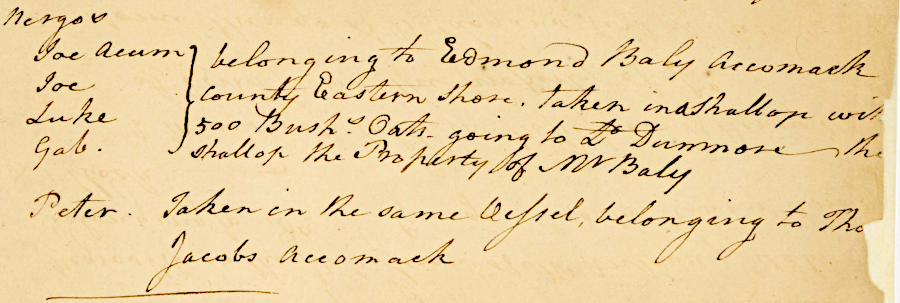 Nergos
Joe Acum belonging to Edmond Baly Accomack
Joe County Eastern Shore. taken in a Shallop wit
Luke 500 Bushs Oats going to Ld Dunmore the
Gab. Shallop the Property of Mr Baly
Peter. Taken in the same Vessel, belonging to Tho
Jacobs Accomack